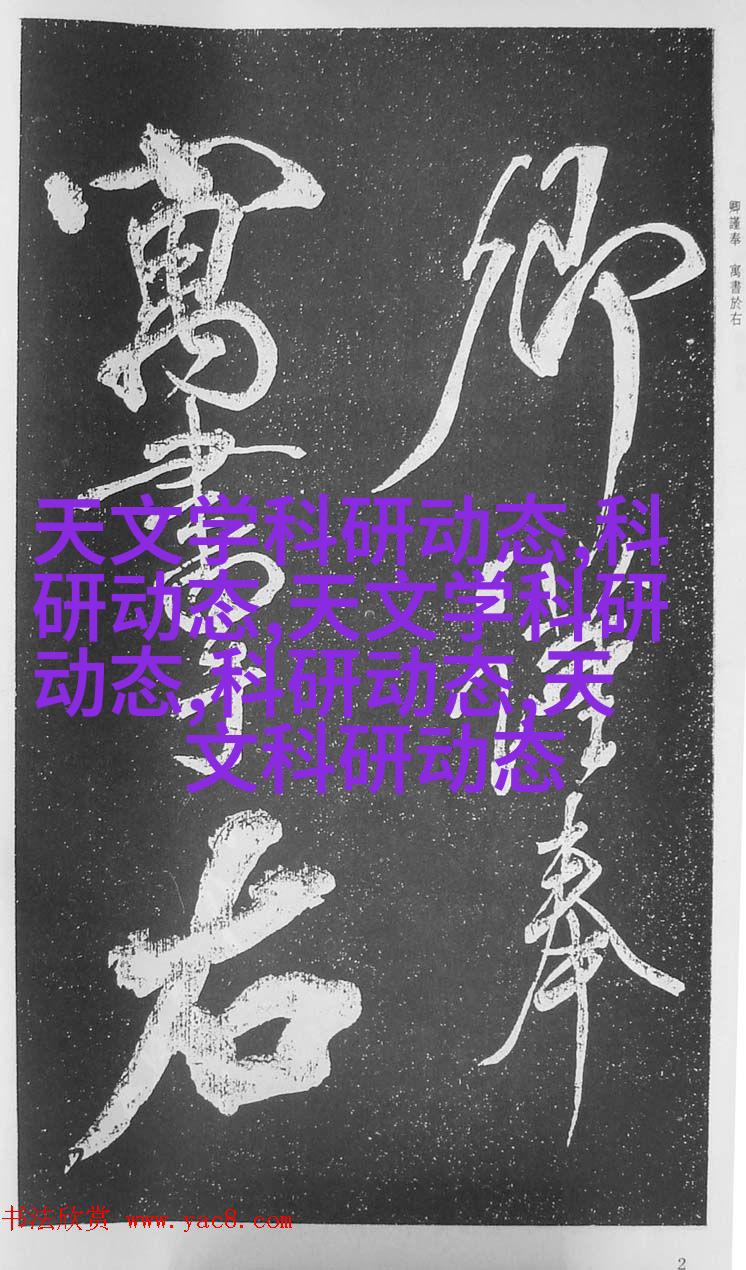 卿謹奉
寓書於右
卿謹奉 寓書於右
天文学科研动态,科
研动态,天文学科研
动态,科研动态,天
文科研动态
书法欣赏 www.yac8.com
2